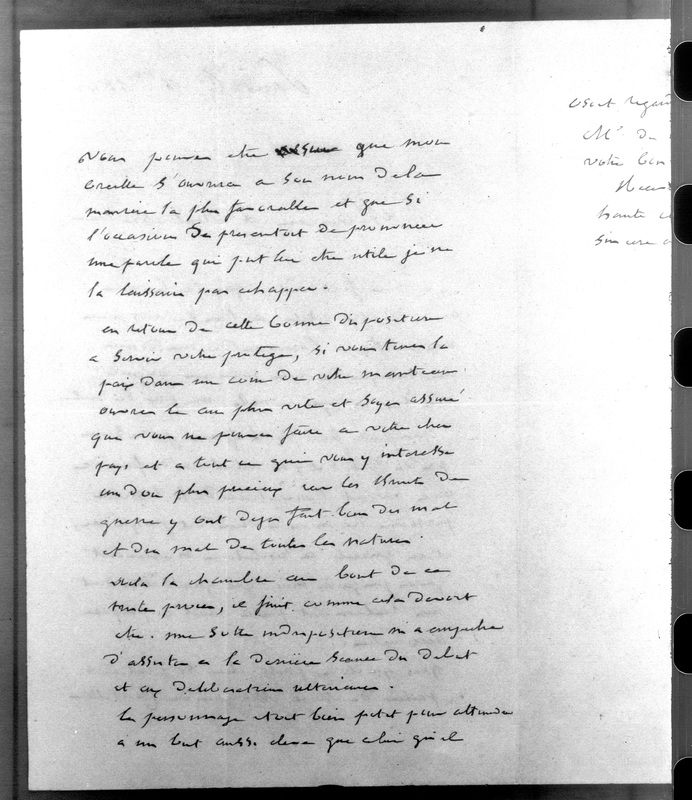 Vous pouvez etre assuré que mon
oreille s'ouvrira a son nom de la
maniere la plus favorable et que si
l'occasion se presentoit de prononcer
une parole qui put lui etre utile je ne
la laisserai pas echapper.
en retour de cette bonne disposition
a servir votre protégé, si vous tenez la
paix dans un coin de votre manteau
ouvrez le au plus vite et soyez assuré
que vous ne pouvez faire a votre cher
pays et a tout ce qui vous y interesse
un don plus precieux car les bruits de
guerre y ont deja fait bien du mal
et du mal de toutes les natures.
voila la chambre au bout de ce
triste procès, il finit comme cela devoit
etre. une sotte indisposition m'a empeché
d'assister a la derniere seance du debat
et aux deliberations ulterieures.
le personnage etoit bien petit pour attendre
a un but aussi élevé que celui qu'il
osoit regar
Mr de
votre bon
haute
sincere